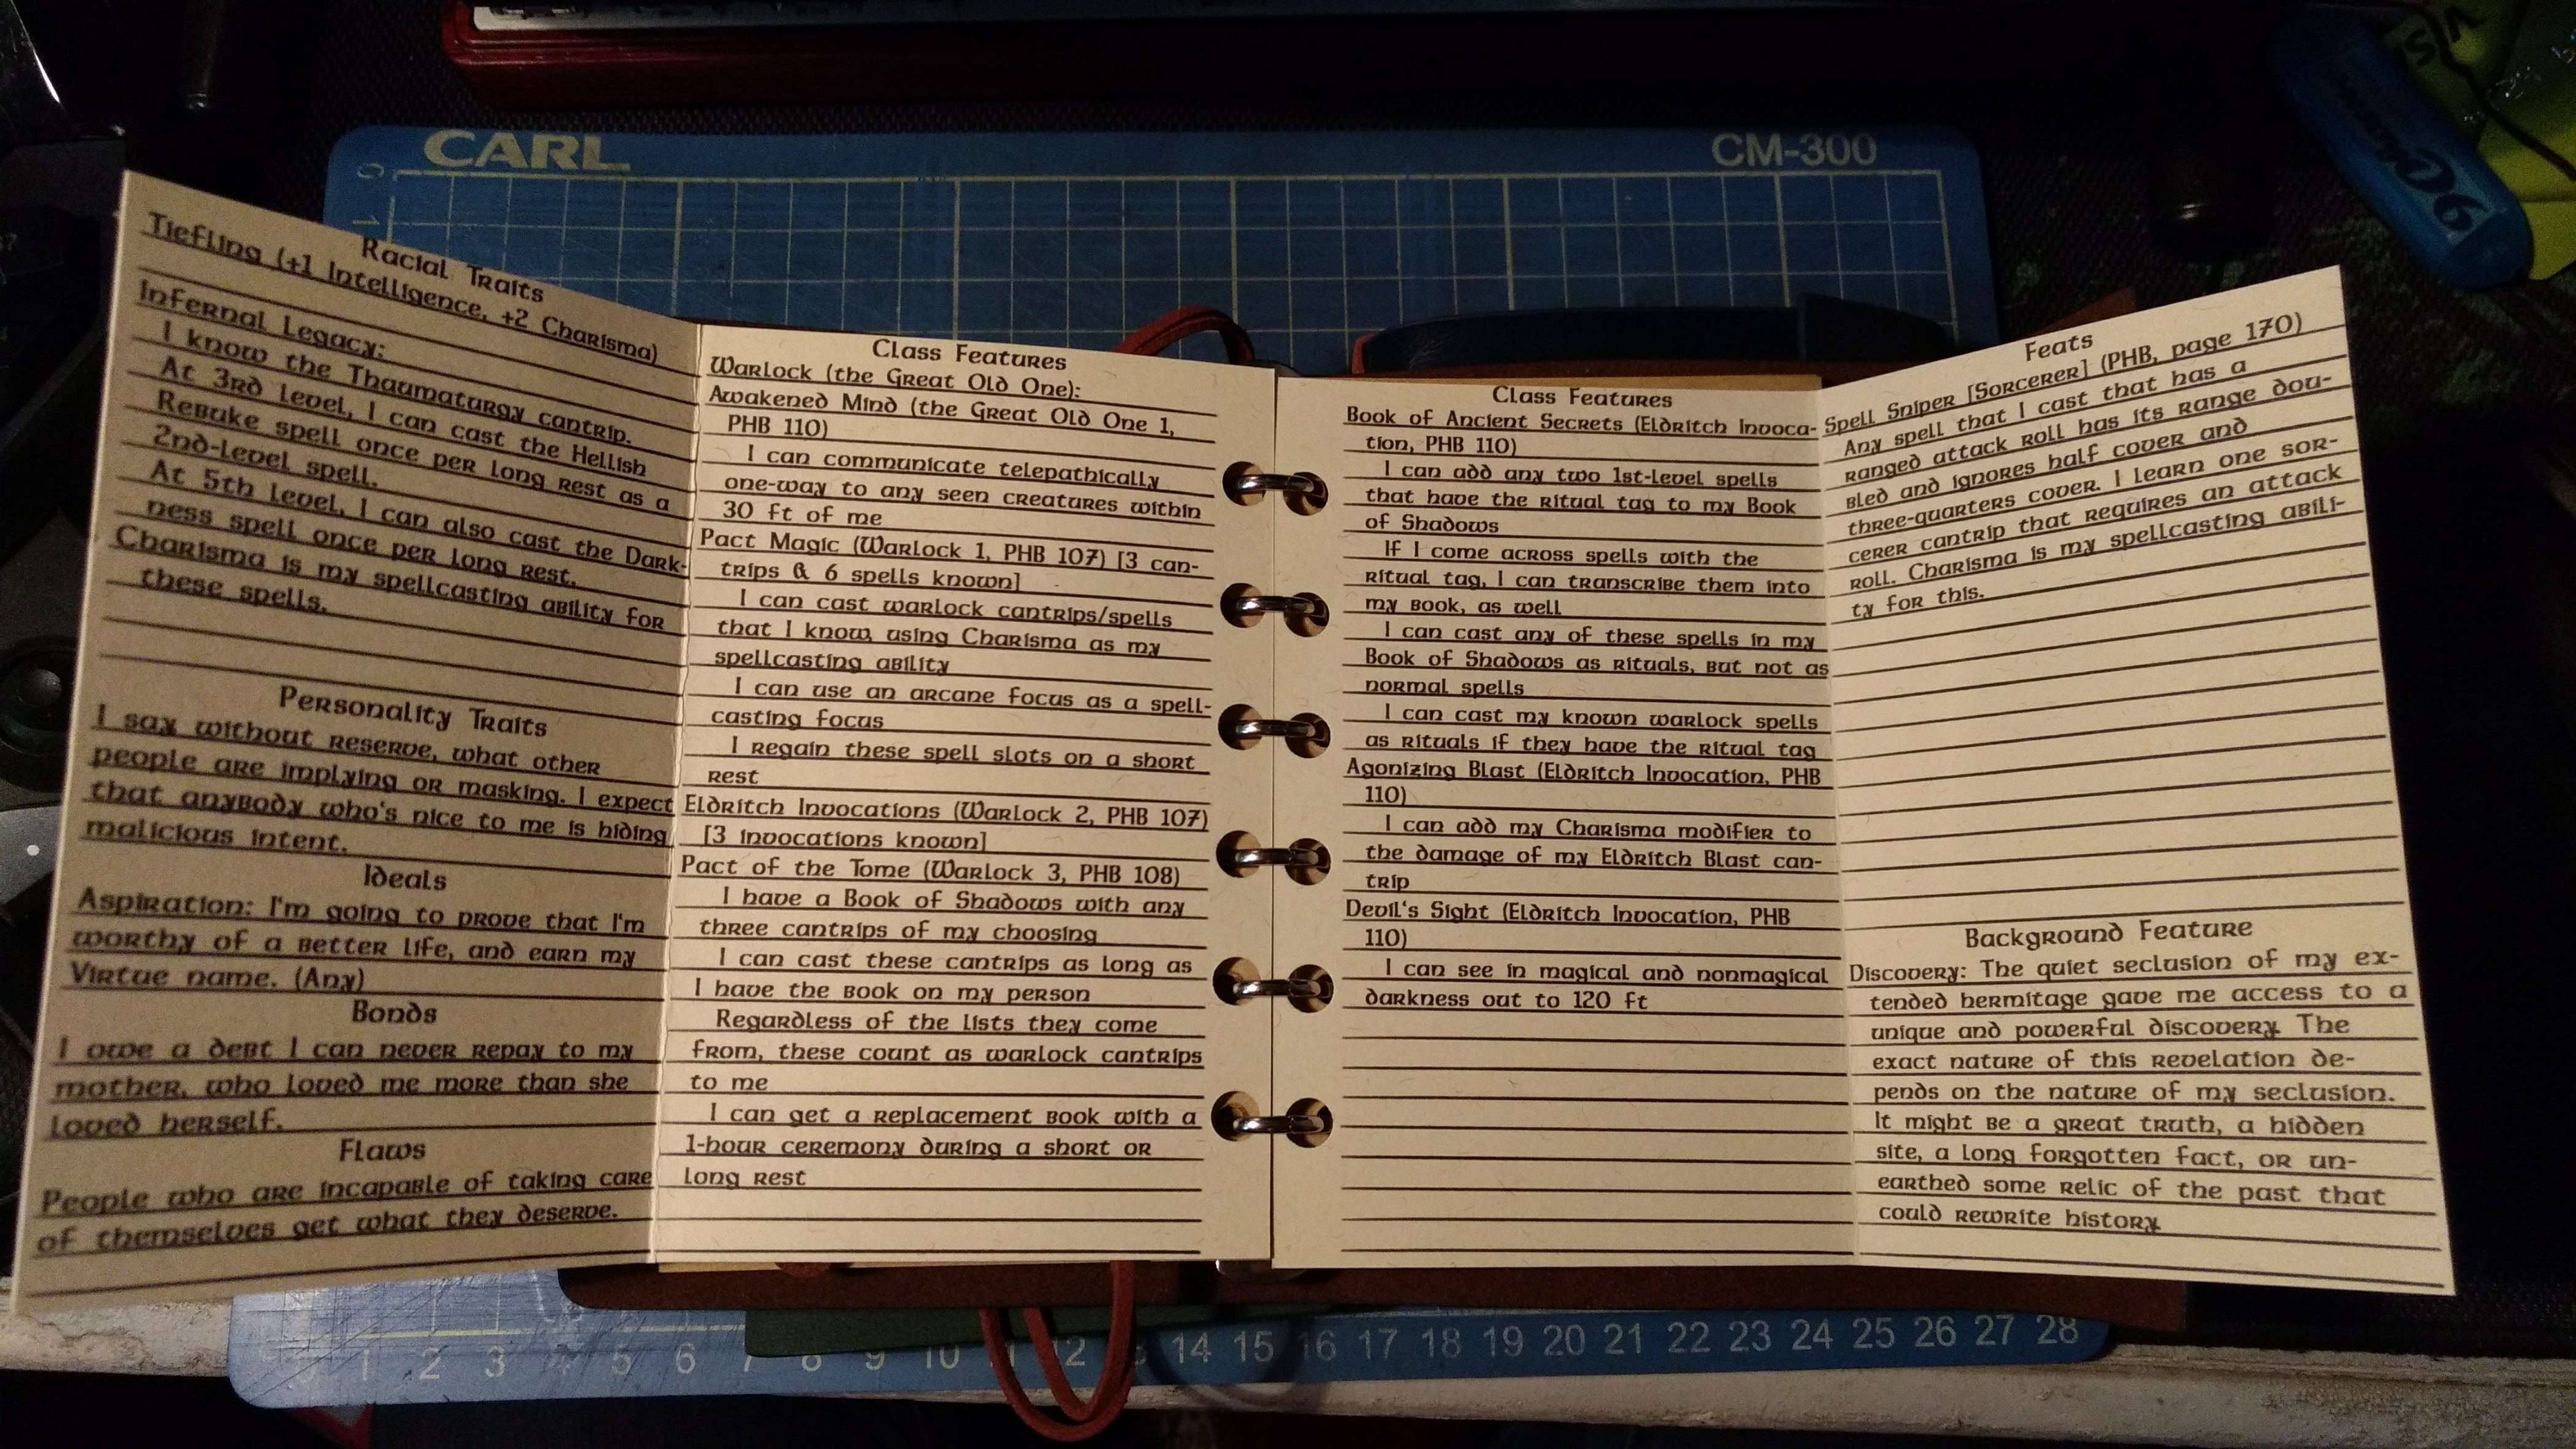 CARL
CM-300
0
1
Racial Traits
Tiefling (+1 Intelligence, +2 Charisma)
Infernal Legacy:
I know the Thaumaturgy cantrip.
At 3rd level, I can cast the Hellish
Rebuke spell once per long rest as a
2nd-level spell.
At 5th level, I can also cast the Dark-
ness spell once per long rest.
Charisma is my spellcasting ability for
these spells.
Personality Traits
I say without reserve, what other
people are implying or masking. I expect
that anybody who's nice to me is hiding
malicious intent.
Ideals
Aspiration: I'm going to prove that I'm
worthy of a better life, and earn my
Virtue name. (Any)
Bonds
I owe a debt I can never repay to my
mother, who loved me more than she
loved herself.
Flaws
People who are incapable of taking care
of themselves get what they deserve.
Class Features
Warlock (the Great Old One):
Awakened Mind (the Great Old One 1,
PHB 110)
I can communicate telepathically
one-way to any seen creatures within
30 ft of me
Pact Magic (Warlock 1, PHB 107) [3 can-
trips & 6 spells known]
I can cast warlock cantrips/spells
that I know, using Charisma as my
spellcasting ability
I can use an arcane focus as a spell-
casting focus
I regain these spell slots on a short
rest
Eldritch Invocations (Warlock 2, PHB 107)
[3 invocations known]
Pact of the Tome (Warlock 3, PHB 108)
I have a Book of Shadows with any
three cantrips of my choosing
I can cast these cantrips as long as
I have the book on my person
Regardless of the lists they come
from, these count as warlock cantrips
to me
I can get a replacement book with a
1-hour ceremony during a short or
long rest
Class Features
Book of Ancient Secrets (Eldritch Invoca-
tion, PHB 110)
I can add any two 1st-level spells
that have the ritual tag to my Book
of Shadows
If I come across spells with the
ritual tag, I can transcribe them into
my book, as well
I can cast any of these spells in my
Book of Shadows as rituals, but not as
normal spells
I can cast my known warlock spells
as rituals if they have the ritual tag
Agonizing Blast (Eldritch Invocation, PHB
110)
I can add my Charisma modifier to
the damage of my Eldritch Blast can-
trip
Devil's Sight (Eldritch Invocation, PHB
110)
I can see in magical and nonmagical
darkness out to 120 ft
Feats
Spell Sniper [Sorcerer] (PHB, page 170)
Any spell that I cast that has a
ranged attack roll has its range dou-
bled and ignores half cover and
three-quarters cover. I learn one sor-
cerer cantrip that requires an attack
roll. Charisma is my spellcasting abili-
ty for this.
Background Feature
Discovery: The quiet seclusion of my ex-
tended hermitage gave me access to a
unique and powerful discovery. The
exact nature of this revelation de-
pends on the nature of my seclusion.
It might be a great truth, a hidden
site, a long forgotten fact, or un-
earthed some relic of the past that
could rewrite history.
1 2 3 4 5 6 7 8 9 10 11 12 13 14 15 16 17 18 19 20 21 22 23 24 25 26 27 28